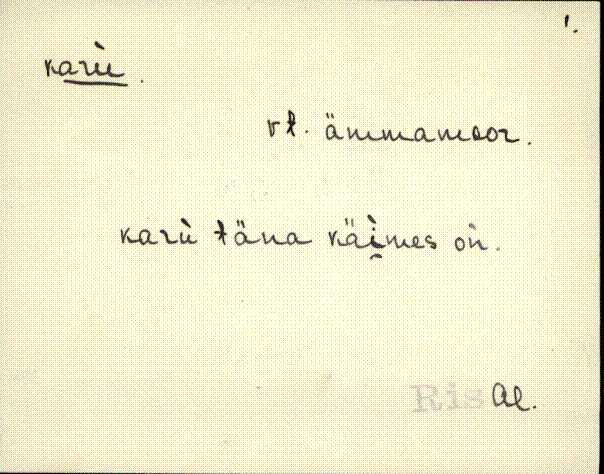 1.
karu̇̀
vt. ämmamoor.
karu̇̀ täna käi̯mes oǹ.
Ris Al.